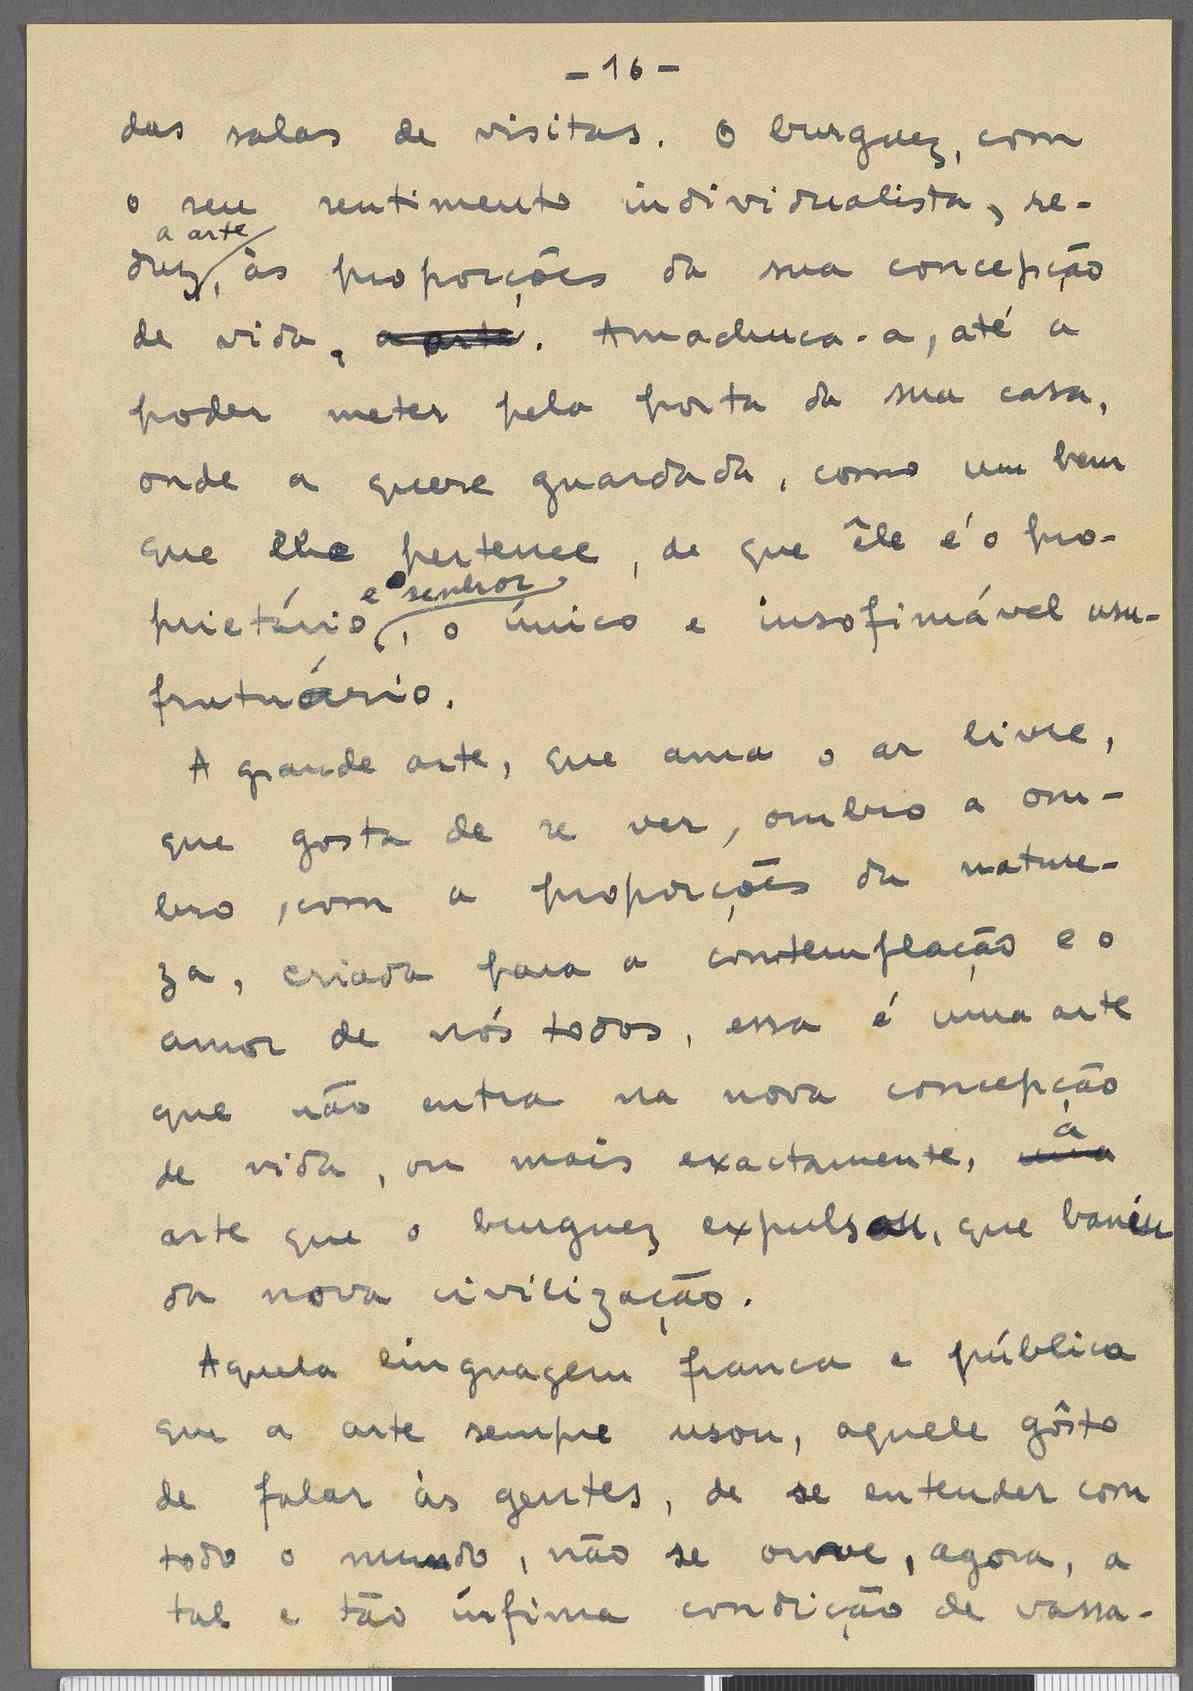 - 16 -
das salas de visitas. O burguez, com
o seu sentimento individualista, re-
a arte
duz, às proporções da sua concepção
de vida, a arte. Amachuca-a, até a
poder meter pela porta da sua casa,
onde a quere guardada, como um bem
que lhe pertence, de que êle é o pro-
e o senhor
prietário, o único e insofimável usu-
frutuário.
A grande arte, que ama o ar livre,
que gosta de se ver, ombro a om-
bro, com a proporções da nature-
za, criada para a contemplação e o
amor de nós todos, essa é uma arte
que não entra na nova concepção
à
de vida, ou mais exactamente, uma
arte que o burguez expulsou, que baniu
da nova civilização.
Aquela linguagem franca e pública
que a arte sempre usou, aquele gôsto
de falar às gentes, de se entender com
todo o mundo, não se ouve, agora, a
tal e tão ínfima condição de vassa-